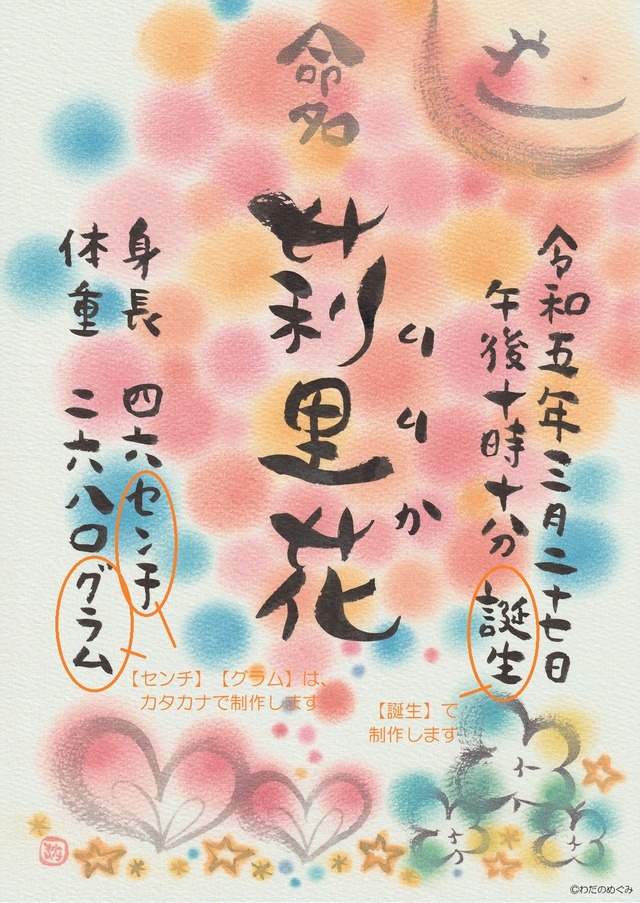 命名
令和五年三月二十七日
午後十時十分 誕生
りりか
莉里花
身長 四六センチ
体重 二六八〇グラム
【センチ】【グラム】は、
カタカナで制作します
【誕生】で
制作します
©わだのめぐみ